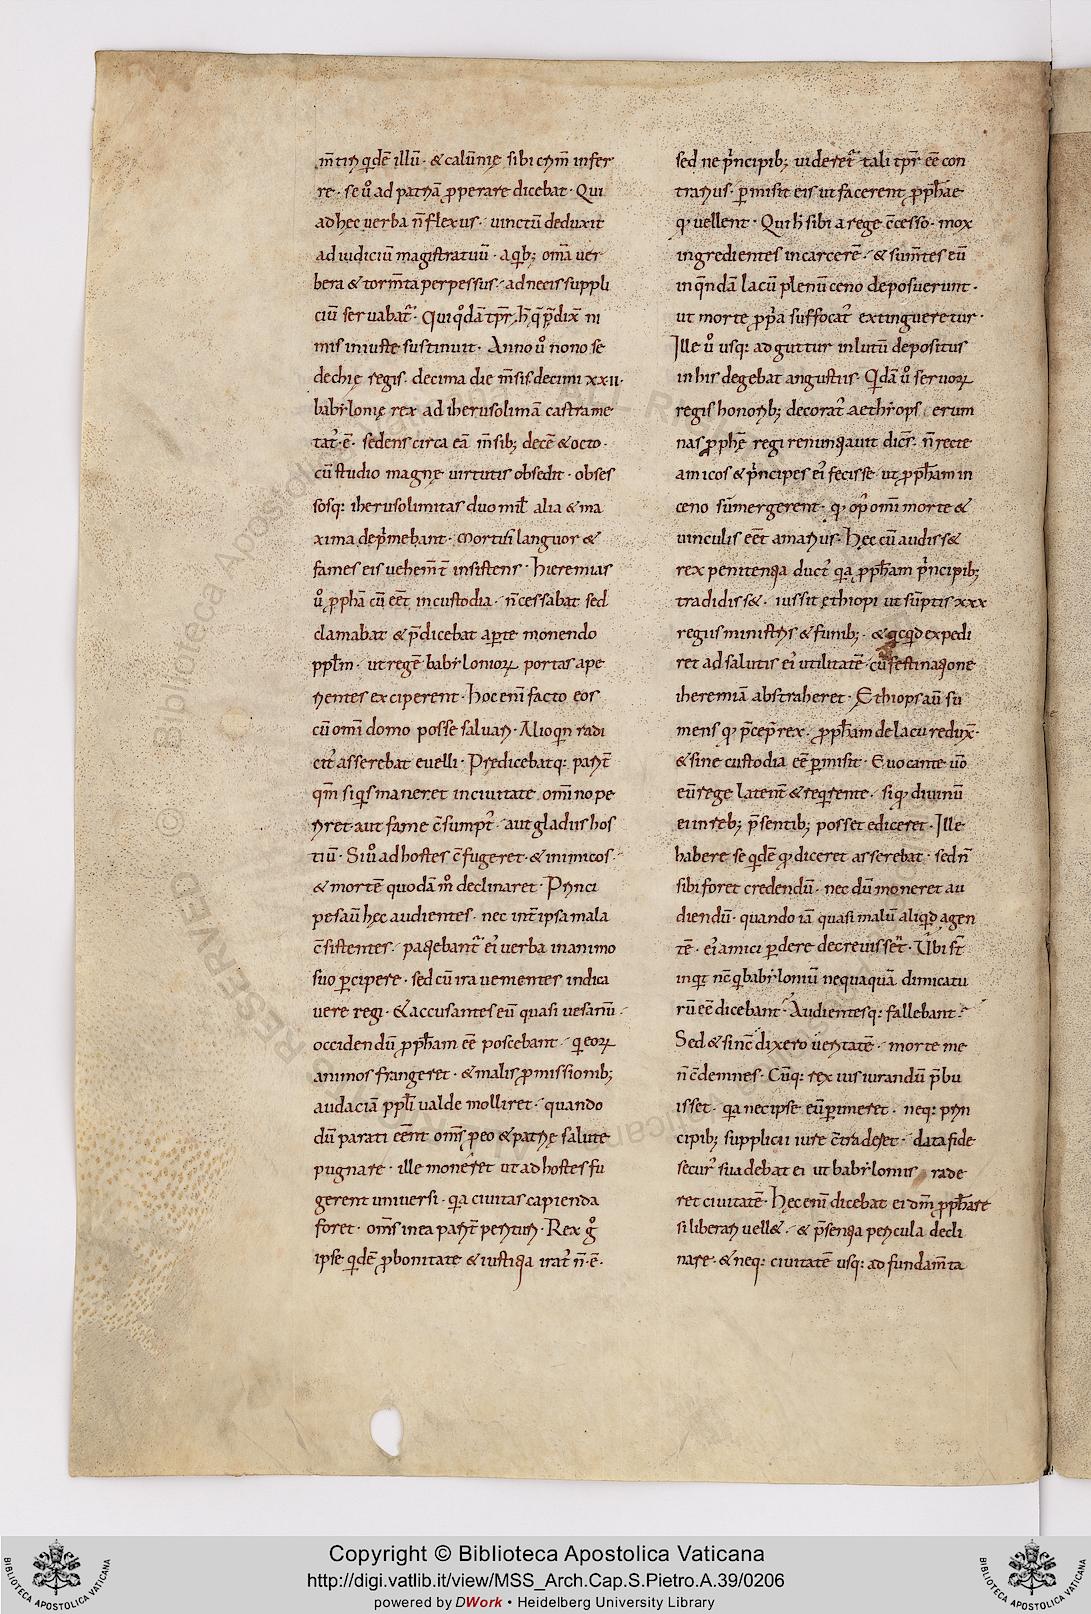 m̄tiri qdē illū · & calūnię sibi crim̄ infer
re · se ů ad patriā pperare dicebat · Qui
ad hęc uerba n̄ flexus · uinctū deduxit
ad iudiciū magistratuū · a qib; om̄a uer
bera & torm̄ta perpessus · ad necis suppli
ciū seruabat᷑ · Qui qdā tp̄r h̨ q̄ p̄dix̄ ni
mis iniuste sustinuit · Anno ů nono se
dechię regis · decima die m̄sis decimi xxii ·
babẏlonię rex ad iherusolimā castrame
tat᷑ · ē · sedens circa eā m̄sib; decē & octo ·
cū studio magnę uirtutis obsedit · obses
sosq; iherusolimitas duo mil̄ alia & ma
xima dep̄mebant · mortifi languor &
fames eis uehem̄t̄ insistens · hieremias
ů pphā cū eēt in custodia · n̄ cessabat sed
clamabat & p̄dicebat apte monendo
ppl̄m · ut regē babẏlonioꝝ portas ape
rientes exciperent · hoc eni facto eos
cū omi domo posse saluari · Alioqin radi
cit᷑ asserebat euelli · Predicebatq; pariť
qm̄ si qis maneret in ciuitate omino pe
riret · aut fame c̄sumpt᷑ · aut gladiis hos
tiū · Si ů ad hostes c̄fugeret · & inimicos ·
& mortē quodā m̊ declinaret · Prínci
pes aū hęc audientes · nec int̄ ipsa mala
c̄sistentes · patiebant᷑ ei᷑ uerba in animo
suo pcipere · sed cū ira uementes indica
uere regi · & accusantes eū quasi uesanū ·
occidendū pph̄am eē poscebant · qi eoꝝ
animos frangeret · & malis pmissionib;
audaciā ppl̄i ualde molliret · quando
dū parati eēnt om̄s p eo & patrię salute
pugnare · ille moneret ut ad hostes fu
gerent uniuersi · qa ciuitas capienda
foret · om̄s in ea pariť perituri · Rex g̊
ipse qdē p bonitate & iustitia irat᷑ n̄ · ē ·
sed ne pincipib; uideret᷑ tali tp̄r eē con
trarius · pmisit eis ut facerent pph̄ae
qꝫ uellent · Qui h̄ sibi a rege c̄cesso · mox
ingredientes in carcerē · & sum̄tes eū
in qndā lacū plenū ceno deposuerunt ·
ut morte ppa suffocat᷑ extingueretur ·
Ille ů usq; ad guttur in lutū depositus
in his degebat angustiis · Qdā ů seruoꝝ
regis honorib; decorat᷑ aethẏops · erum
nas pphę regi renuntiauit dic̄s · n̄ recte
amicos & pincipes ei᷑ fecisse ut pph̄am in
ceno sūmergerent · qꝫ op̄ omi morte &
uinculis eēt amarius · Hęc cū audiss&
rex penitentia duct᷑ qa pph̄am pincipib;
tradidiss& · iussit ęthiopi ut sūptis xxx
regiis ministris & funib; · & qcqd expedi
ret ad salutis ei᷑ utilitatē · cū festinatione
iheremiā abstraheret · Ethiops aū su
mens qꝫ p̄cep̄ rex · pph̄am de lacu redux̄ ·
& sine custodia eē pmisit · Euocante uō
eū rege latent̄ & reqirente · si qꝫ diuinū
ei in reb; p̄sentib; posset ediceret · Ille
habere se qdē qꝫ diceret asserebat · sed n̄
sibi foret credendū · nec dū moneret au
diendū · quando iā quasi malū aliqd agen
tē · ei᷑ amici pdere decreuisset᷑ · Ubi st̄
inqt nc̄ qi babẏloniū nequaquā dimicatu
rū eē dicebant · Audientesq; fallebant ·
Sed & si nc̄ dixero ueritatē · morte me
n̄ c̄demnes · Cūq; rex iusiurandū p̄bu
isset · qa nec ipse eū pimeret · neq; prin
cipib; supplicii iure c̄traderet · data fide
secur᷑ suadebat ei ut babẏloniis trade
ret ciuitatē · Hęc eni dicebat ei dm̄ pph̄are
si liberari uell& · & p̄sentia pericula decli
nare · & neq; ciuitatē usq; ad fundam̄ta
Copyright © Biblioteca Apostolica Vaticana
http://digi.vatlib.it/view/MSS_Arch.Cap.S.Pietro.A.39/0206
powered by DWork • Heidelberg University Library
BIBLIOTECA APOSTOLICA VATICANA
BIBLIOTECA APOSTOLICA VATICANA